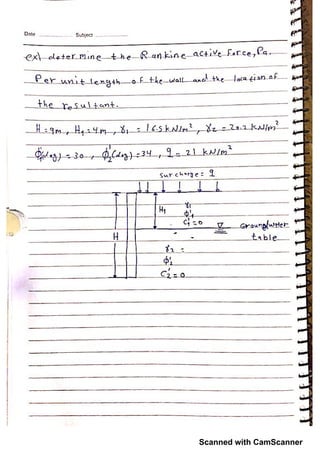 Date Subject
ex\ determine the Rankine active force, Pa.
Per unit length of the wall and the location of
the resultant.
H = 9m, H1 = 4m, γ1 = 16.5 kN/m², γ2 = 20.2 kN/m²
ϕ1(deg) = 30, ϕ2(deg) = 34, q = 21 kN/m²
surcharge = q
H1
γ1
ϕ'1
C'1 = 0
Groundwater
table
H
γ2 =
ϕ'2
C'2 = 0
Scanned with CamScanner